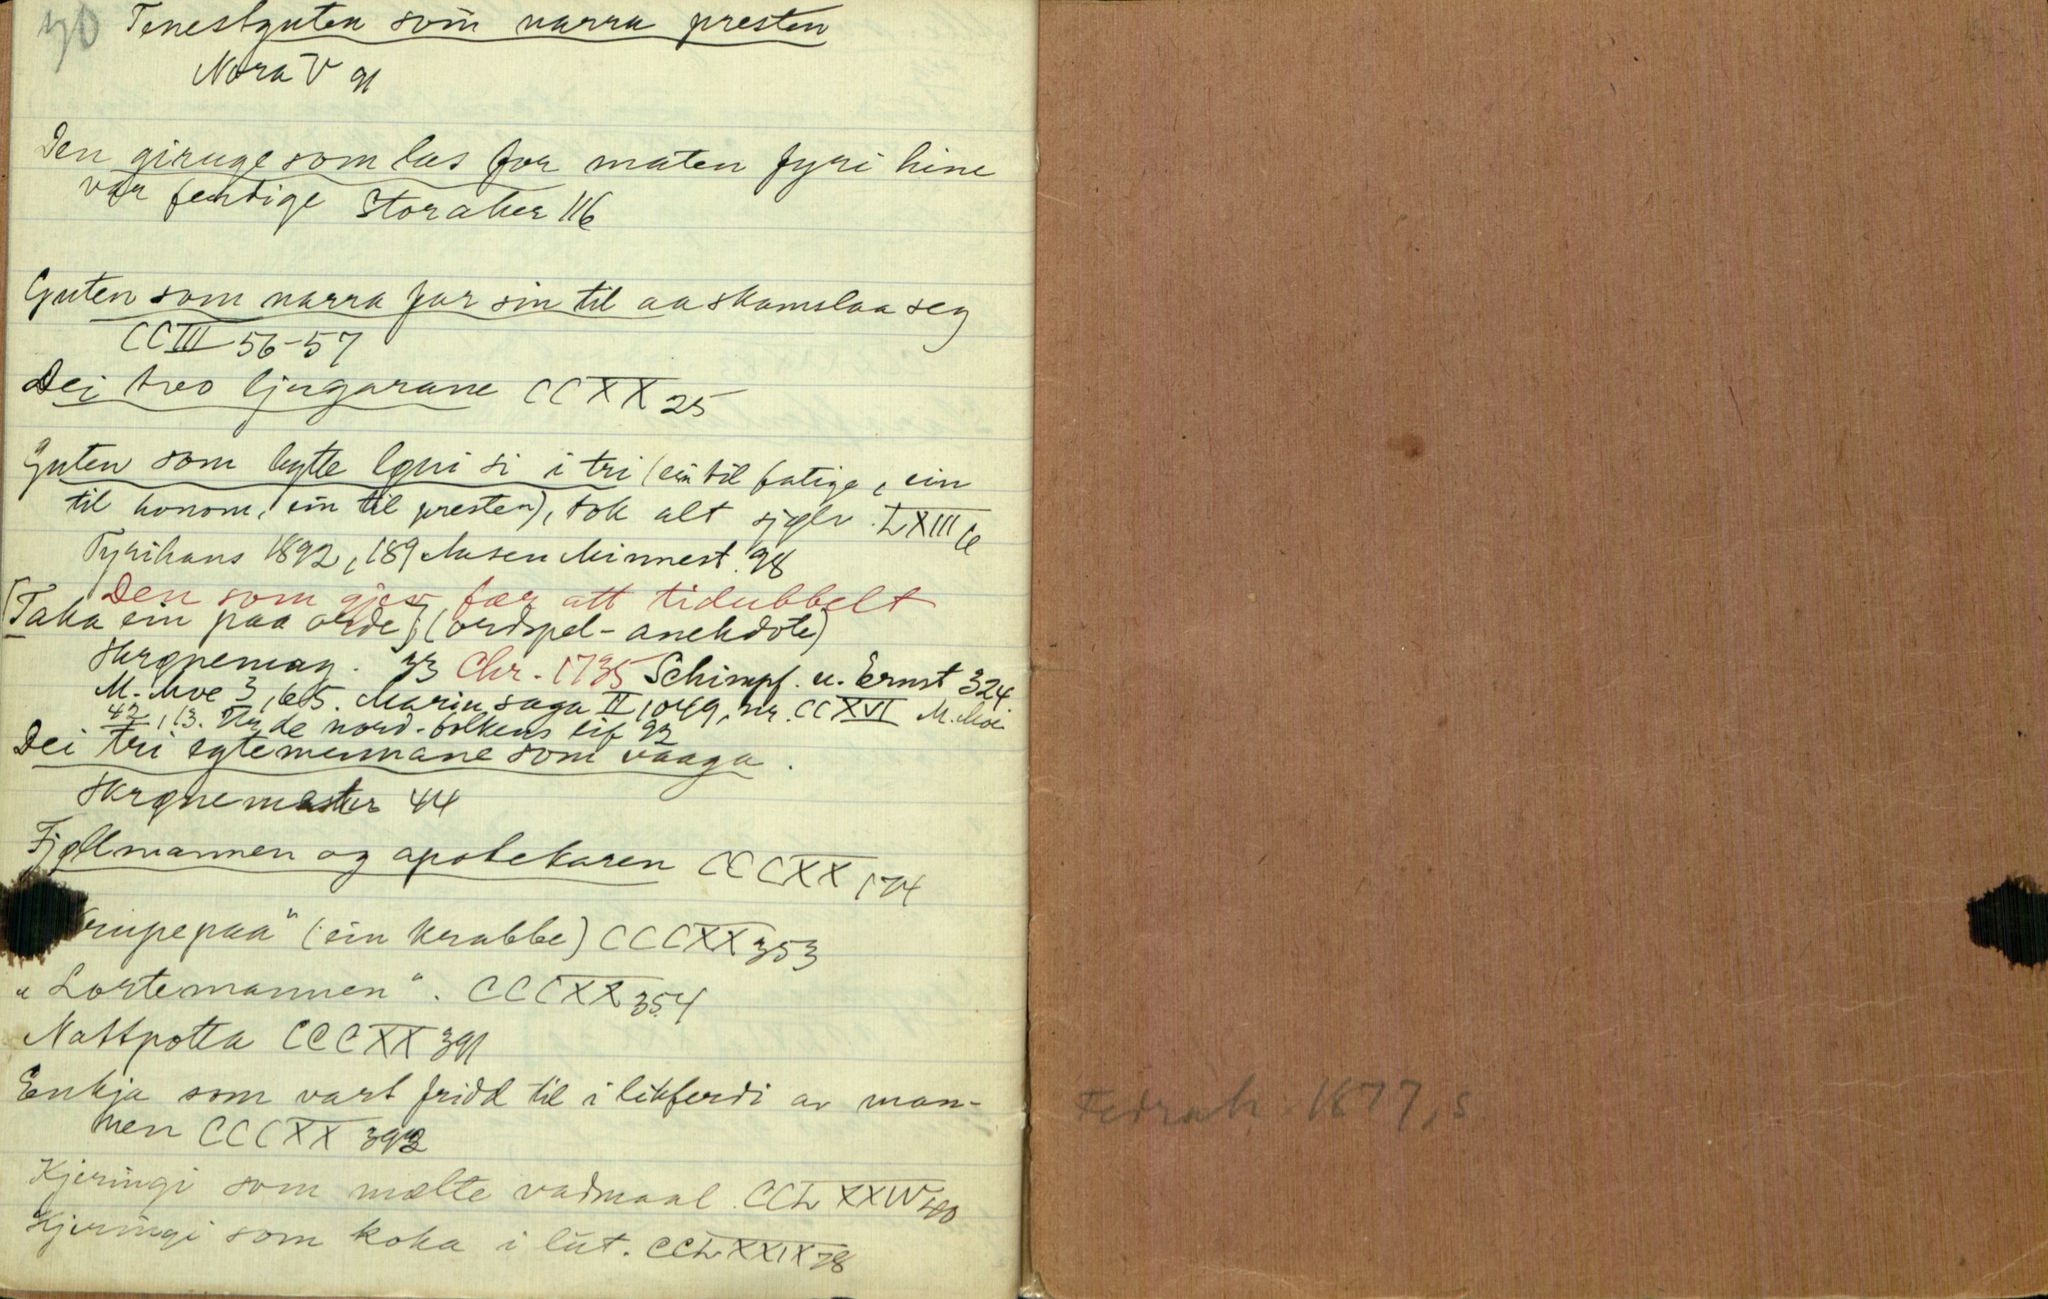 70 Tenestguten som narra presten
Nora V 91
Den giruge som las for maten fyri hine
var ferdige Storaker 116
Guten som narra far sin til aa skamslaa seg
CCIII 56-57
Dei tvo ljugarane CCXX 25
Guten som bytte løni si i tri (ein til fatige, ein
til honom, ein til presten), tok alt sjølv. LXIII 6
Tyrihans 1892, 189 Aasen Minnest. 98
Den som gjev fær att tidubbelt
[Taka ein paa orde] (ordspel-anekdote)
Skrønemag. 33 Chr. 1735 Schimpf. u. Ernst 324
M. Moe 3, 65. Mariu saga II, 1049, nr. CCXVI M. Moe
42, 13. nord. folkens liv 92
Dei tri egtemennane som vaaga.
Skrønemester 44
Fjellmannen og apotekaren CCCXX 174
(ein krabbe) CCCXX 353
„Lortemannen“. CCCXX 354
Nattpotta CCCXX 391
Enkja som vart fridd til i likferdi av man-
nen CCCXX 392
Kjeringi som mælte vadmaal. CCLXXIV 40
Kjeringi som koka i lut. CCLXXIX 78
Fedrah. 1877, s